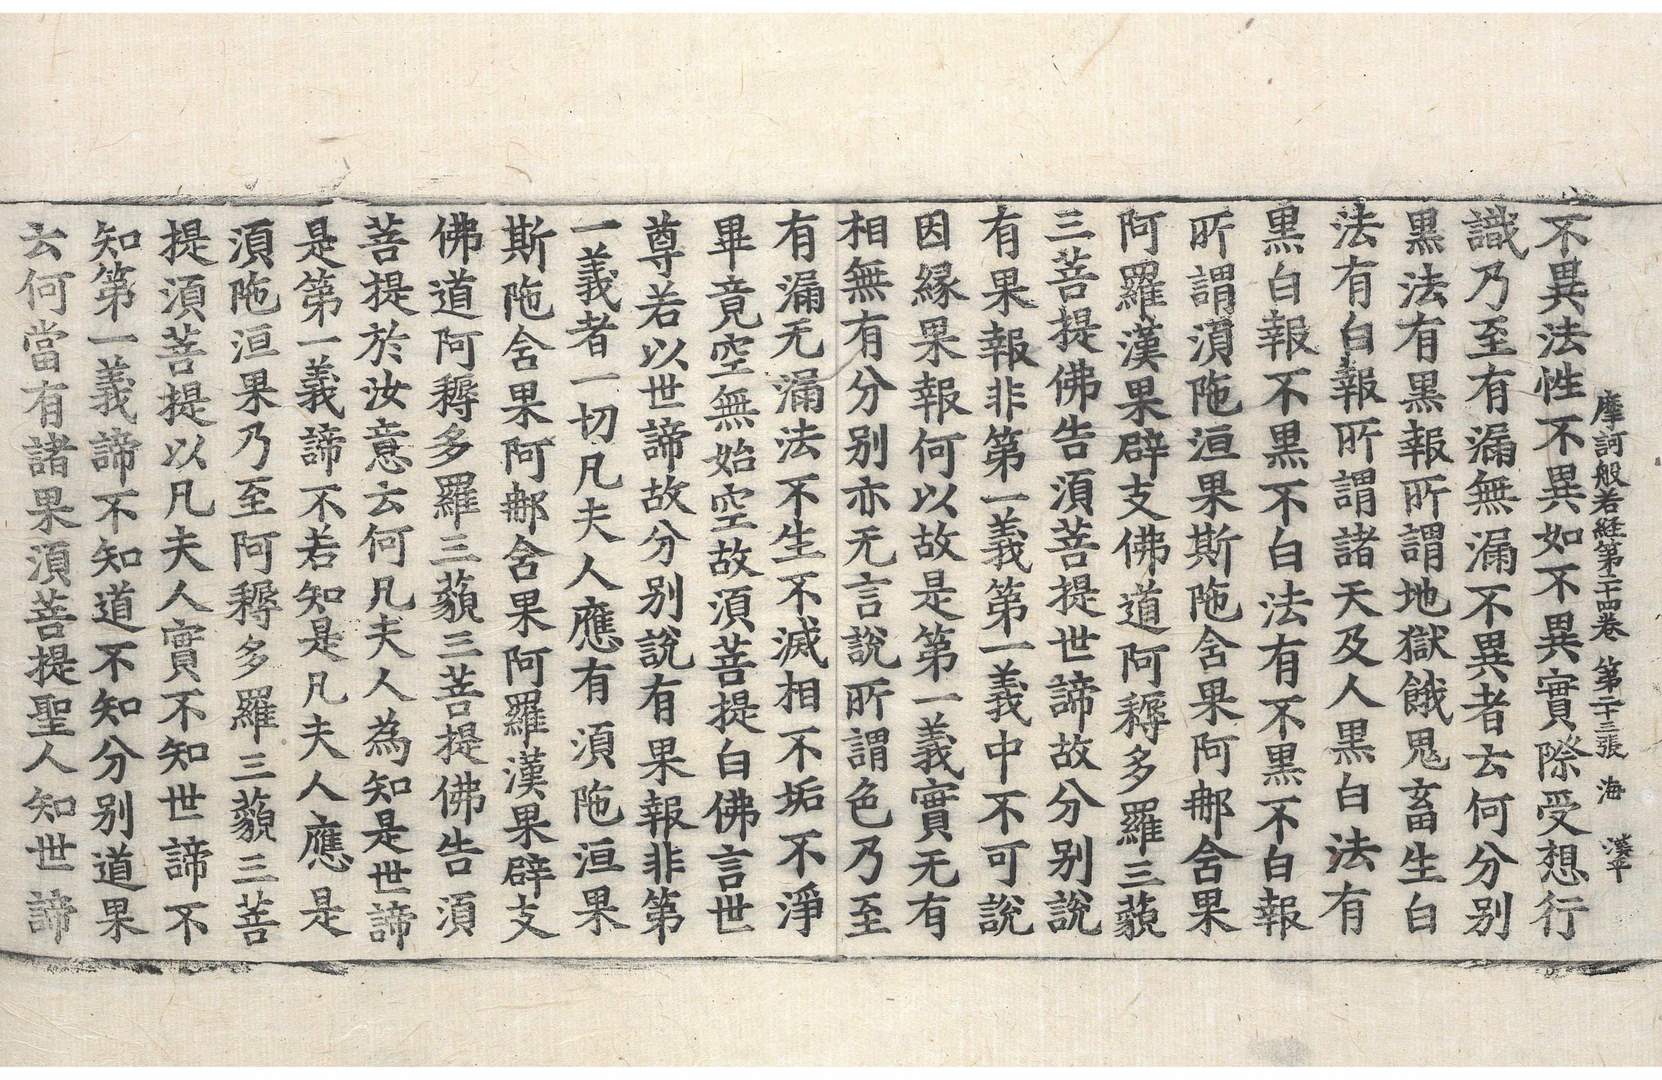 摩訶般若経第二十四卷 第二十三張 海 漢平
不異法性不異如不異實際受想行
識乃至有漏無漏不異者云何分別
黒法有黒報所謂地獄餓鬼畜生白
法有白報所謂諸天及人黒白法有
黒白報不黒不白法有不黒不白報
所謂湏陁洹果斯陁舍果阿郍舍果
阿羅漢果辟支佛道阿耨多羅三藐
三菩提佛告湏菩提世諦故分別說
有果報非第一義第一義中不可說
因縁果報何以故是第一義實无有
相無有分別亦无言說所謂色乃至
有漏无漏法不生不滅相不垢不淨
畢竟空無始空故湏菩提白佛言世
尊若以世諦故分別說有果報非第
一義者一切凡夫人應有湏陁洹果
斯陁舍果阿郍舍果阿羅漢果辟支
佛道阿耨多羅三藐三菩提佛告湏
菩提於汝意云何凡夫人為知是世諦
是第一義諦不若知是凡夫人應是
湏陁洹果乃至阿耨多羅三藐三菩
提湏菩提以凡夫人實不知世諦不
知第一義諦不知道不知分別道果
云何當有諸果湏菩提聖人知世諦